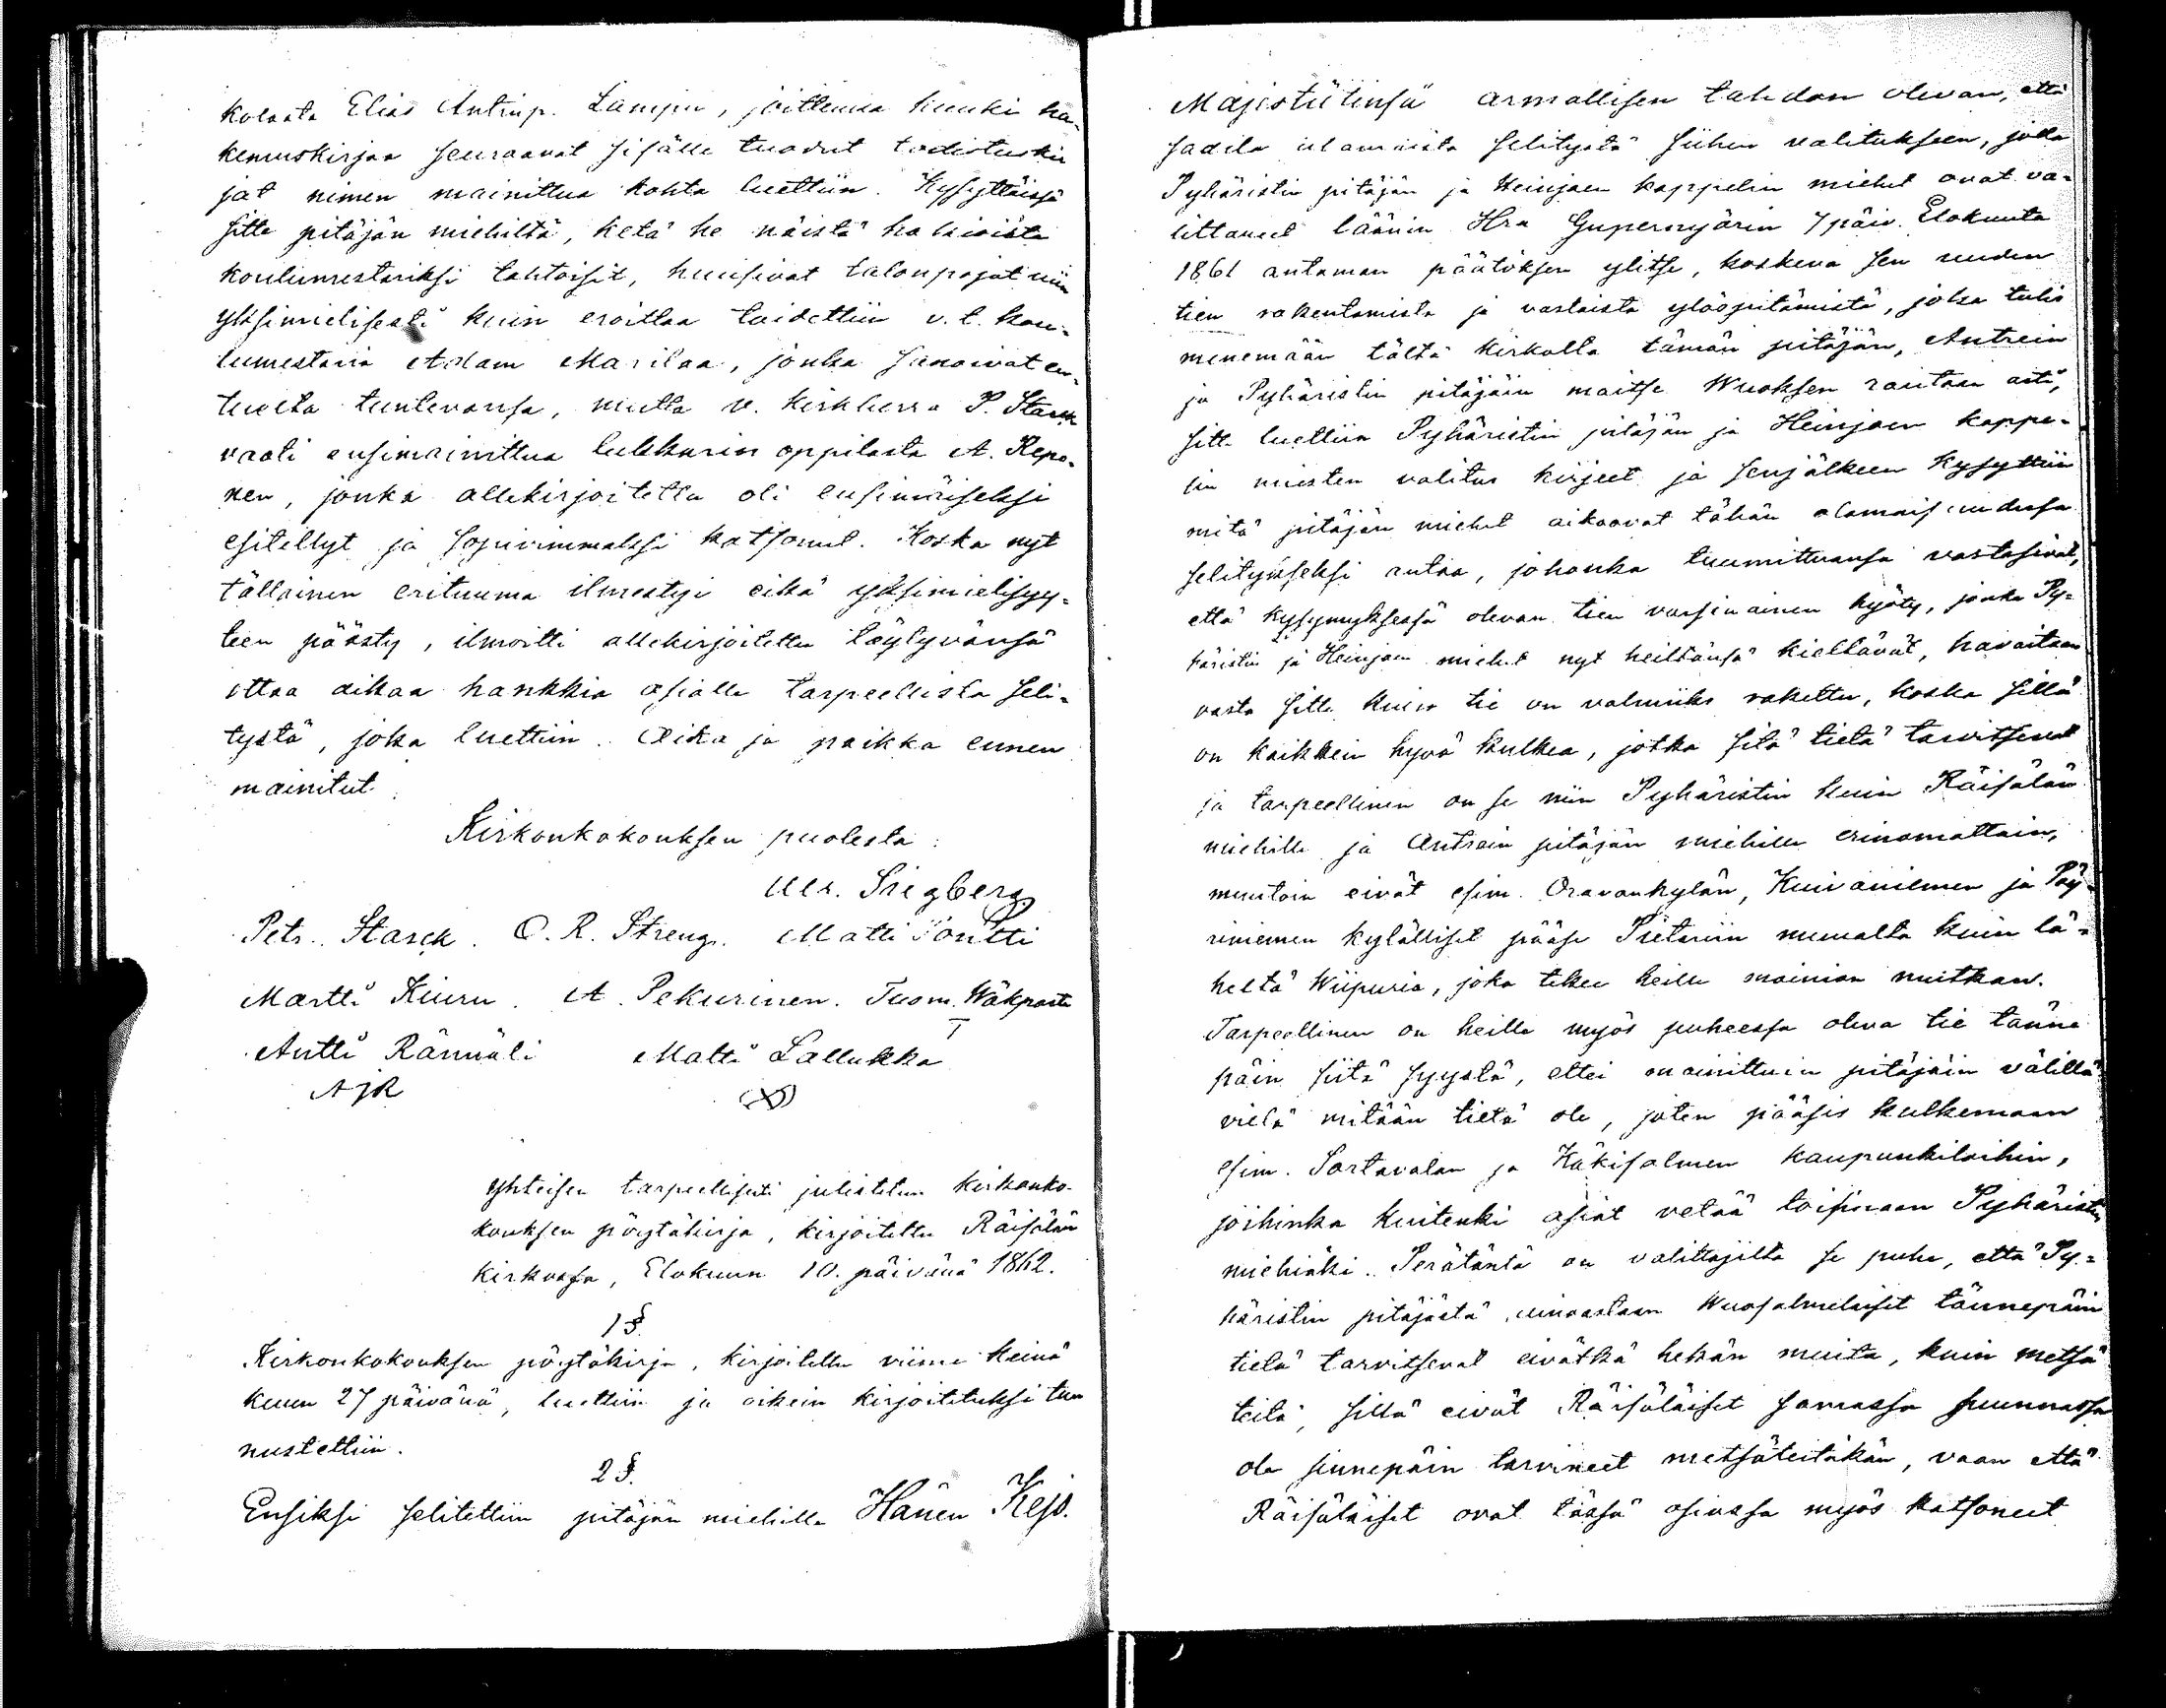 kolasta Elias Antinp. Lampu, joittenka kunki ha-
kemuskirjaa seuraavat sisälle tuodut todistuskir
jat nimen mainittua kohta luettiin. Kysyttäissä
sitte pitäjän miehiltä, ketä he näistä hakioista
koulumestariksi tahtoisit, huusivat talonpojat niin
yksimielisesti kuin eroittaa taidettiin v. t. kou-
lumestaria Adam Marilaa, jonka sanoivat en-
tuelta tuntevansa, mutta v. kirkherra P. Starck
vaati ensimainittua lukkarin oppilasta A. Repo-
nen, jonka allekirjoitettu oli ensimäiseksi
esitellyt ja sopivimmaksi katsonut. Koska nyt
tällainen erituuma ilmestyi eikä yksimielisyy-
teen päästy, ilmoitti allekirjoitettu täytyvänsä
ottaa aikaa hankkia asialle tarpeellista seli-
tystä, joka luettiin. Aika ja paikka ennen
mainitut.
Kirkonkokouksen puolesta:
Ulr. Siegberg
Petr. Starck. O. R. Streng. Matti Pontti
Martti Kiuru. A. Pekurinen. Tuom. Wäkparta
Antti Rännäli Matti Lallukka
AJR
Yhteisen tarpeellisesti julistetun kirkonko-
kouksen pöytäkirja, kirjoitettu Räisälän
kirkossa, Elokuun 10. päivänä 1862.
1 §.
Kirkonkokouksen pöytäkirja, kirjoitettu viime heinä
kuun 27 päivänä, luettiin ja oikein kirjoitetuksi tun
nustettiin.
2 §.
Ensiksi selitettiin pitäjän miehille Hänen Keis.
Majestätinsä armollisen tahdon olevan, että
saada alammista selitystä siihen valitukseen, jolla
Pyhäristin pitäjän ja Heinjoen kappelin miehet ovat va-
littaneet läänin Hra Gupernyärin 7 päiv. Elokuuta
1861 antaman päätöksen ylitse, koskeva sen uuden
tien rakentamista ja vastaista ylööspitämistä, joka tulis
menemään tältä kirkolta tämän pitäjän, Antrein
ja Pyhäristin pitäjäin maitse Wuoksen rantaan asti,
sitte luettiin Pyhäristin pitäjän ja Heinjoen kappe-
lin miesten valitus kirjeet ja senjälkeen kysyttiin
mitä pitäjän miehet aikoovat tähän alamaisuudessa
selitykseksi antaa, johonka tuumittuansa vastasivat,
että kysymyksessä olevan tien varsinainen hyöty, jonka Py-
häristin ja Heinjoen miehet nyt heiltänsä kieltävät, havaitaan
vasta sitte kuin tie on valmiiks rakettu, koska sillä
on kaikkein hyvä kulkea, jotka sitä tietä tarvitsevat
ja tarpeellinen on se niin Pyhäristin kuin Räisälän
miehille ja Antrein pitäjän miehille erinomattain,
muutoin eivät esim. Oravankylän, Kuivaniemen ja Pöy-
riniemen kylälliset pääse Pietariin muualta kuin lä-
heltä Wiipuria, joka tekee heille mainion mutkan.
Tarpeellinen on heille myös puheessa oleva tie tänne
päin siitä syystä, ettei mainittuin pitäjäin välillä
vielä mitään tietä ole, joten pääsis kulkemaan
esim. Sortavalan ja Käkisalmen kaupunkiloihin,
joihinka kuitenki asiat vetää toisinaan Pyhäristin
miehiäki. Perätäntä on valittajilta se puhe, että Py-
häristin pitäjästä ainoastaan Wuosalmelaiset tännepäin
tietä tarvitsevat eivätkä hekän muita, kuin metsä
teitä, sillä eivät Räisäläiset samassa suunnassa
ole sinnepäin tarvineet metsäteitäkän, vaan että
Räisäläiset ovat tässä asiassa myös katsoneet